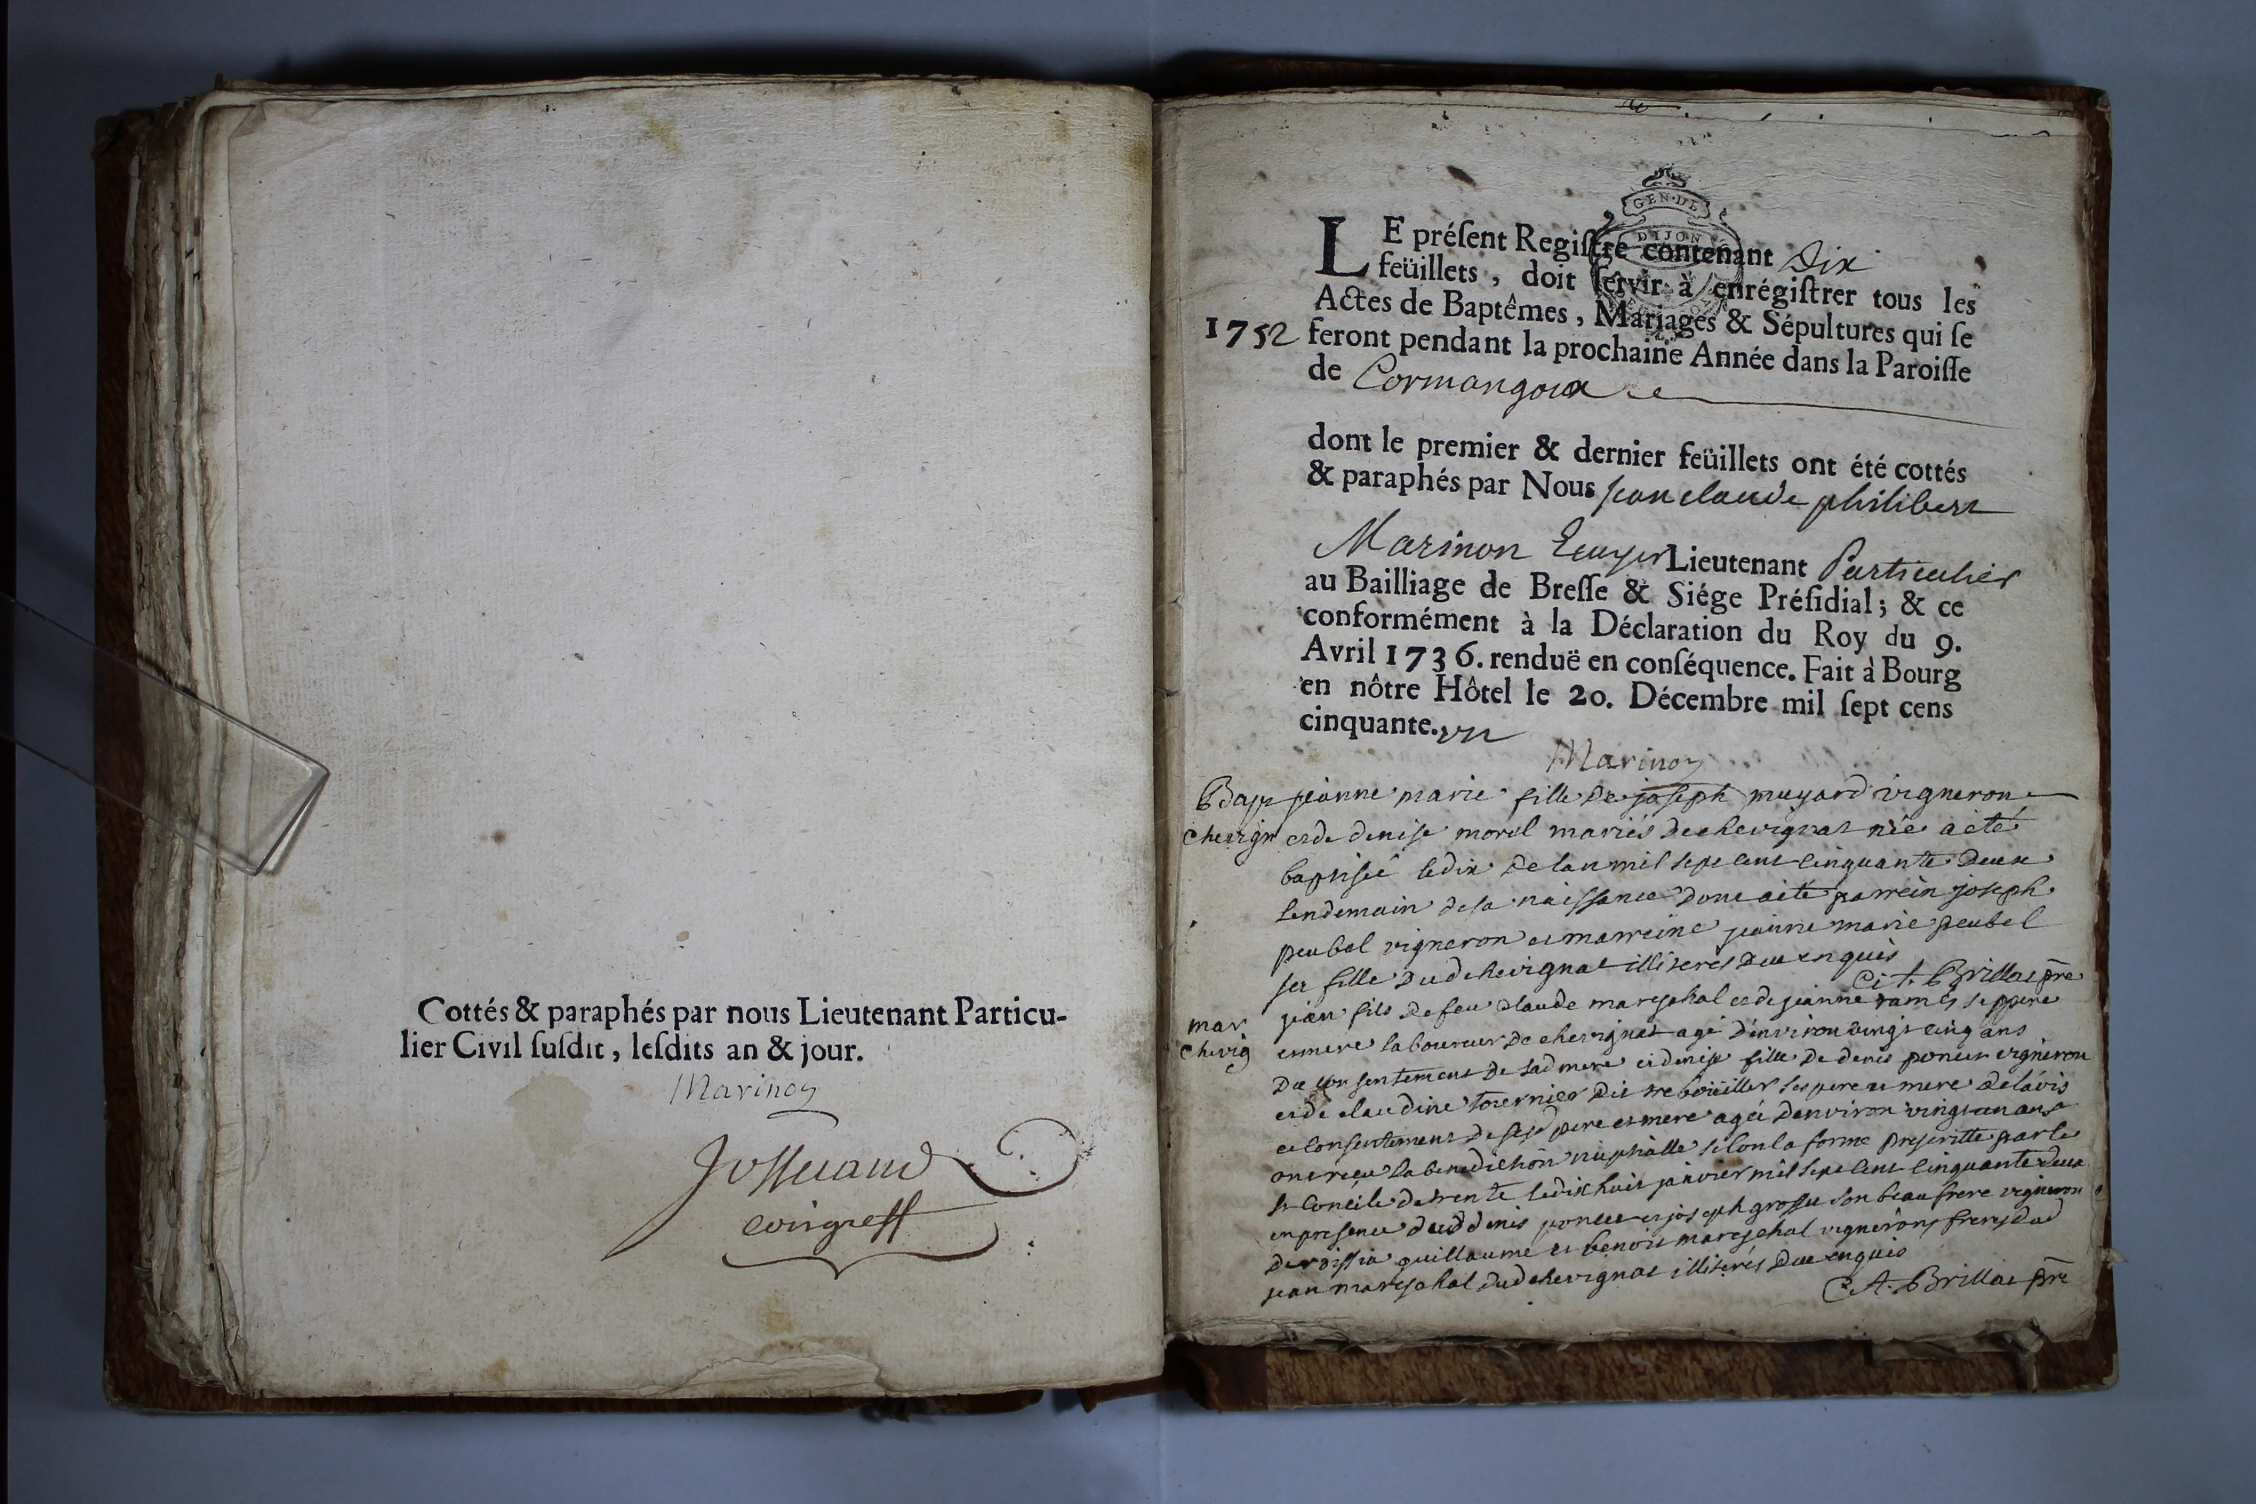 Cottés & paraphés par nous Lieutenant Particu-
lier Civil suſdit, leſdits an & jour.
Marinon
GEN·DE
DIJON
LE préſent Regiſtre contenant Dix
feüillets, doit ſervir à enrégiſtrer tous les
Actes de Baptêmes, Mariages & Sépultures qui ſe
1752 feront pendant la prochaine Année dans la Paroiſſe
de Cormangoux
dont le premier & dernier feüillets ont été cottés
& paraphés par Nous jean claude philibert
Marinon Ecuyer Lieutenant Particulier
au Bailliage de Breſſe & Siége Préſidial; & ce
conformément à la Déclaration du Roy du 9.
Avril 1736. renduë en conſéquence. Fait à Bourg
en nôtre Hôtel le 20. Décembre mil ſept cens
cinquante. un
Marinon
Bap jeanne marie fille de joseph muyard vigneron
chevign et de denise morel mariés de chevignat née a eté
baptisée le dix de lan mil sept cent cinquante deux
lendemain de sa naissance dont a eté parrein joseph
peubel vigneron et marreine jeanne marie peubel
sa fille dud chevignat illiteres due enquis
C. A. Brillat pre
mar jean fils de feu claude mareschal et de jeanne ses pere
chevig et mere laboureur de chevignat agé d'environ vingt cinq ans
du consentement de sad mere et denise fille de denis poncet vigneron
et de claudine tournier dit ses pere et mere de lavis
et consentement de sesd pere et mere agée denviron vingt un ans
ont reçu la benediction nuptialle selon la forme prescritte par le
st Concile de trente le dix huit janvier mil sept cent cinquante deux
en presence dud denis poncet et joseph son beau frere vigneron
guillaume et benoit mareschal vignerons freres dud
jean mareschal dud chevignat illiterés due enquis
C. A. Brillat pre